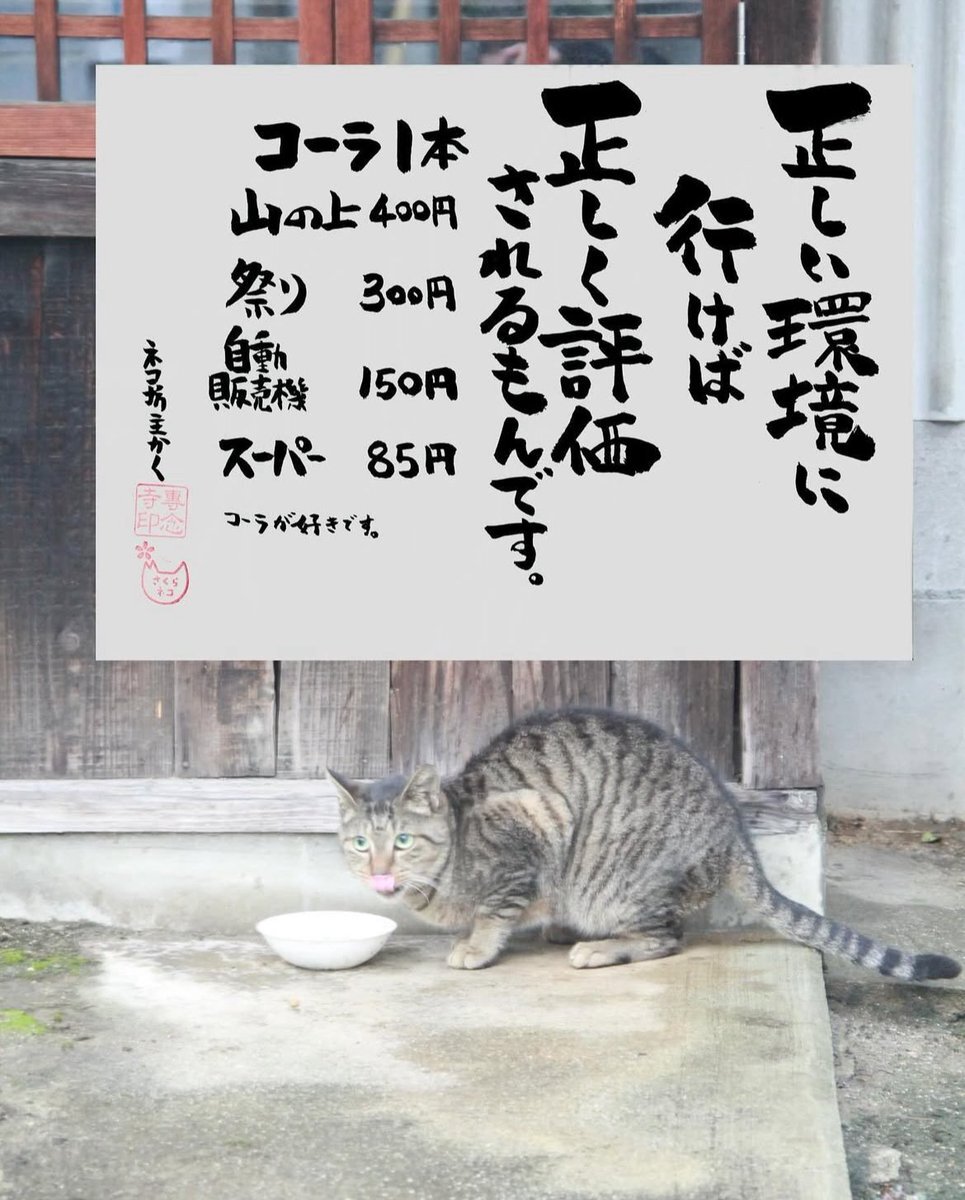 正しい環境に
行けば
正しく評価
されるもんです。
コーラ1本
山の上 400円
祭り 300円
自動
販売機 150円
スーパー 85円
コーラが好きです。
ネコ坊主かく
專念
寺印
さくら
ネコ